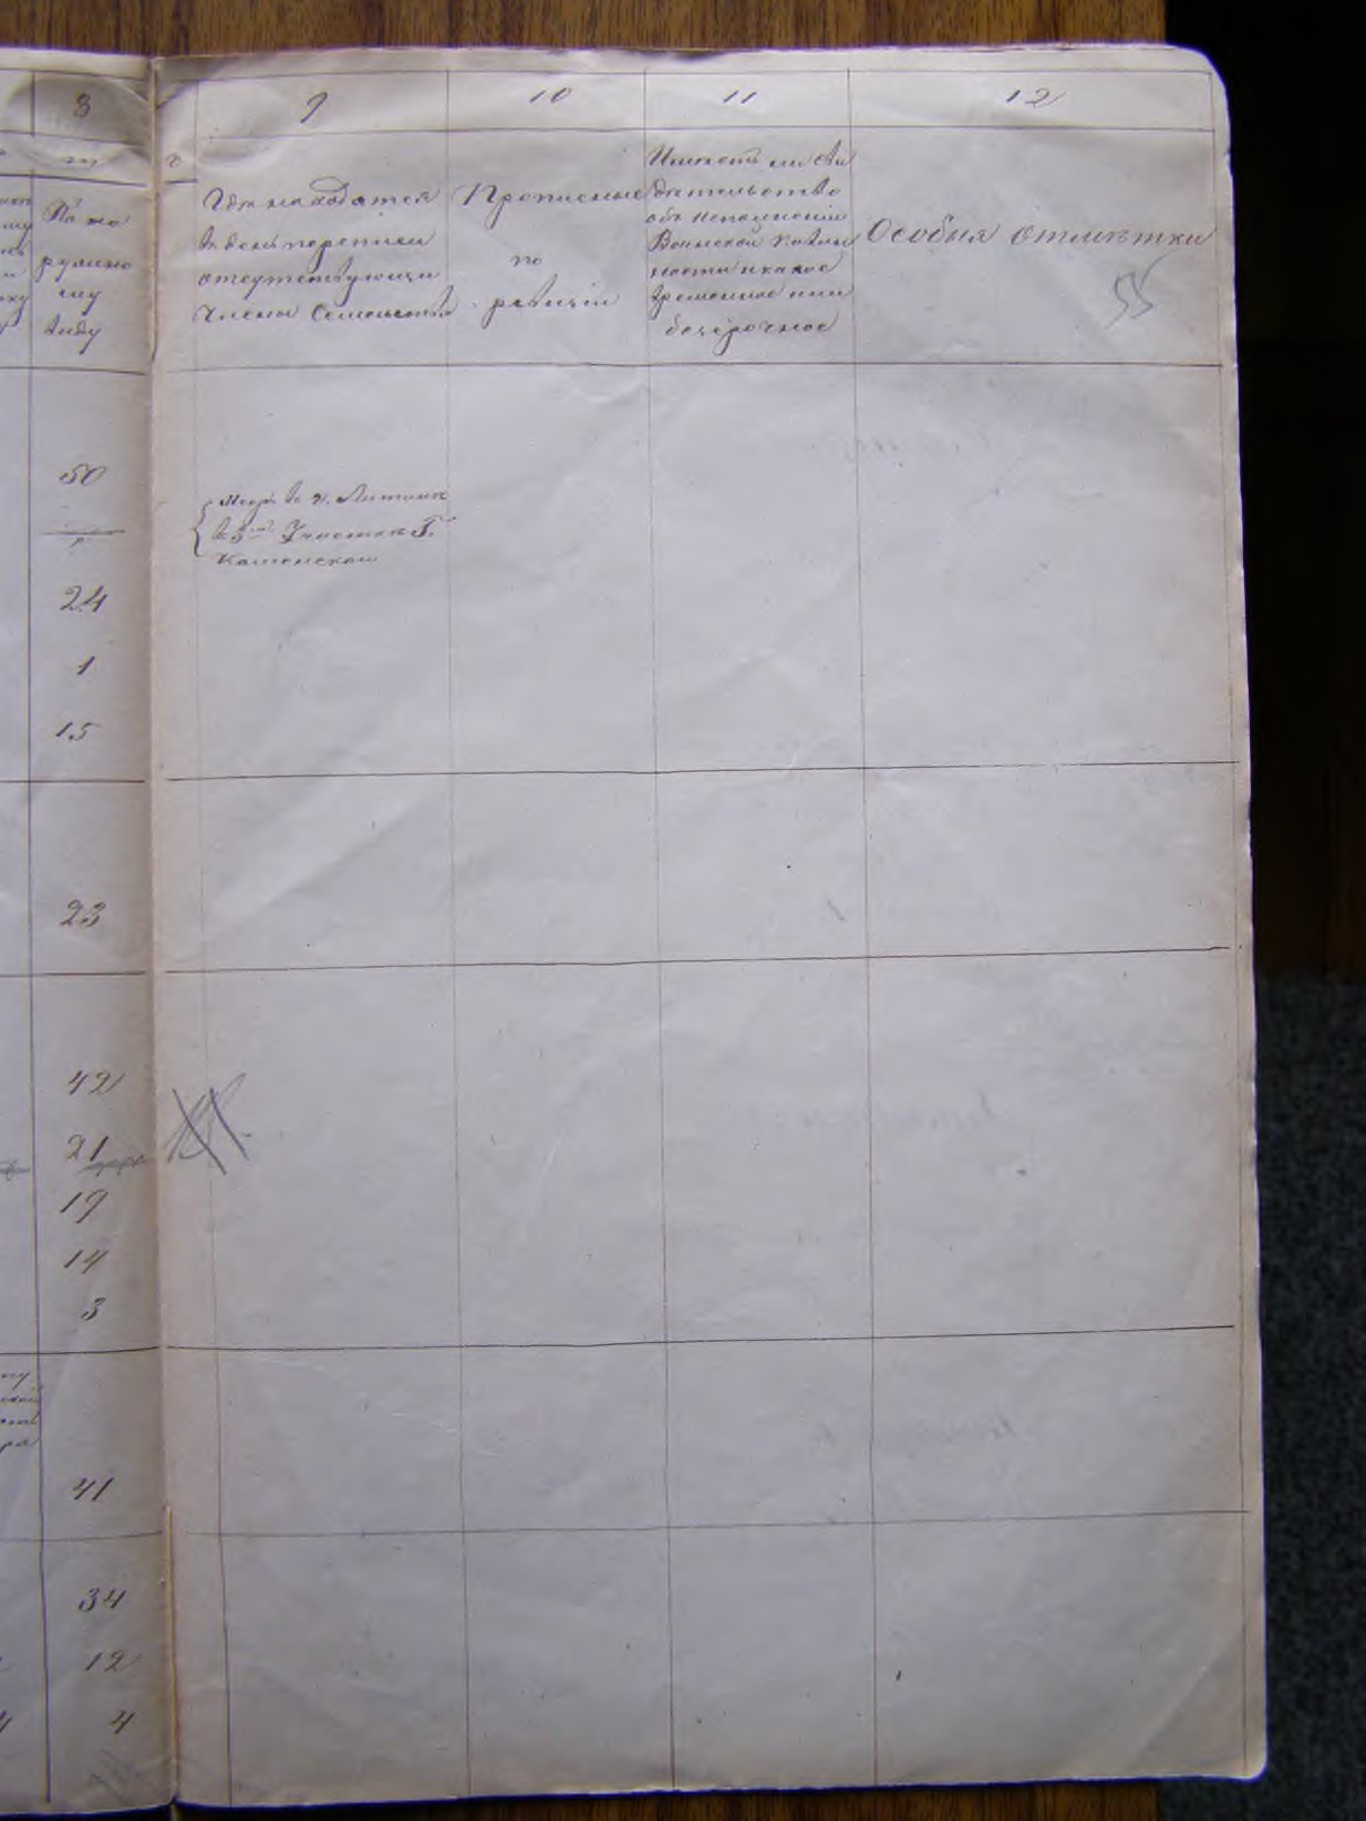 8
9
10
11
12
По на
ружно
му
виду
Где находятся
в день переписи
отсутствующии
члены Семейства
Прописные
по
ревизіи
Имеетъ ли сви
детельство
объ исполнении
Воинской Повин
ности и какое
временное или
безсрочное
Особыя отметки
55
50
въ г. Литине
в 3 Участке Г.
Каменской
24
1
15
23
42
21
19
14
3
41
34
12
4